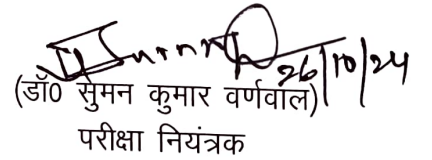 26/10/24
(डॉ0 सुमन कुमार वर्णवाल)
परीक्षा नियंत्रक